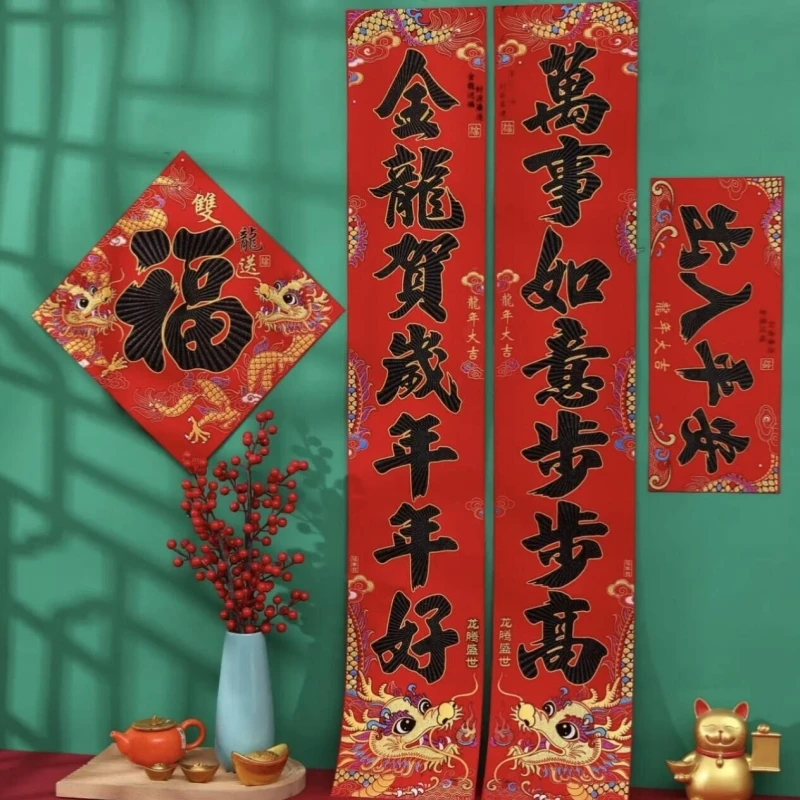 雙龍送
福
金龍賀歲年年好
龍年大吉
龙腾盛世
萬事如意步步高
龍年大吉
龙腾盛世
出入平安
龍年大吉